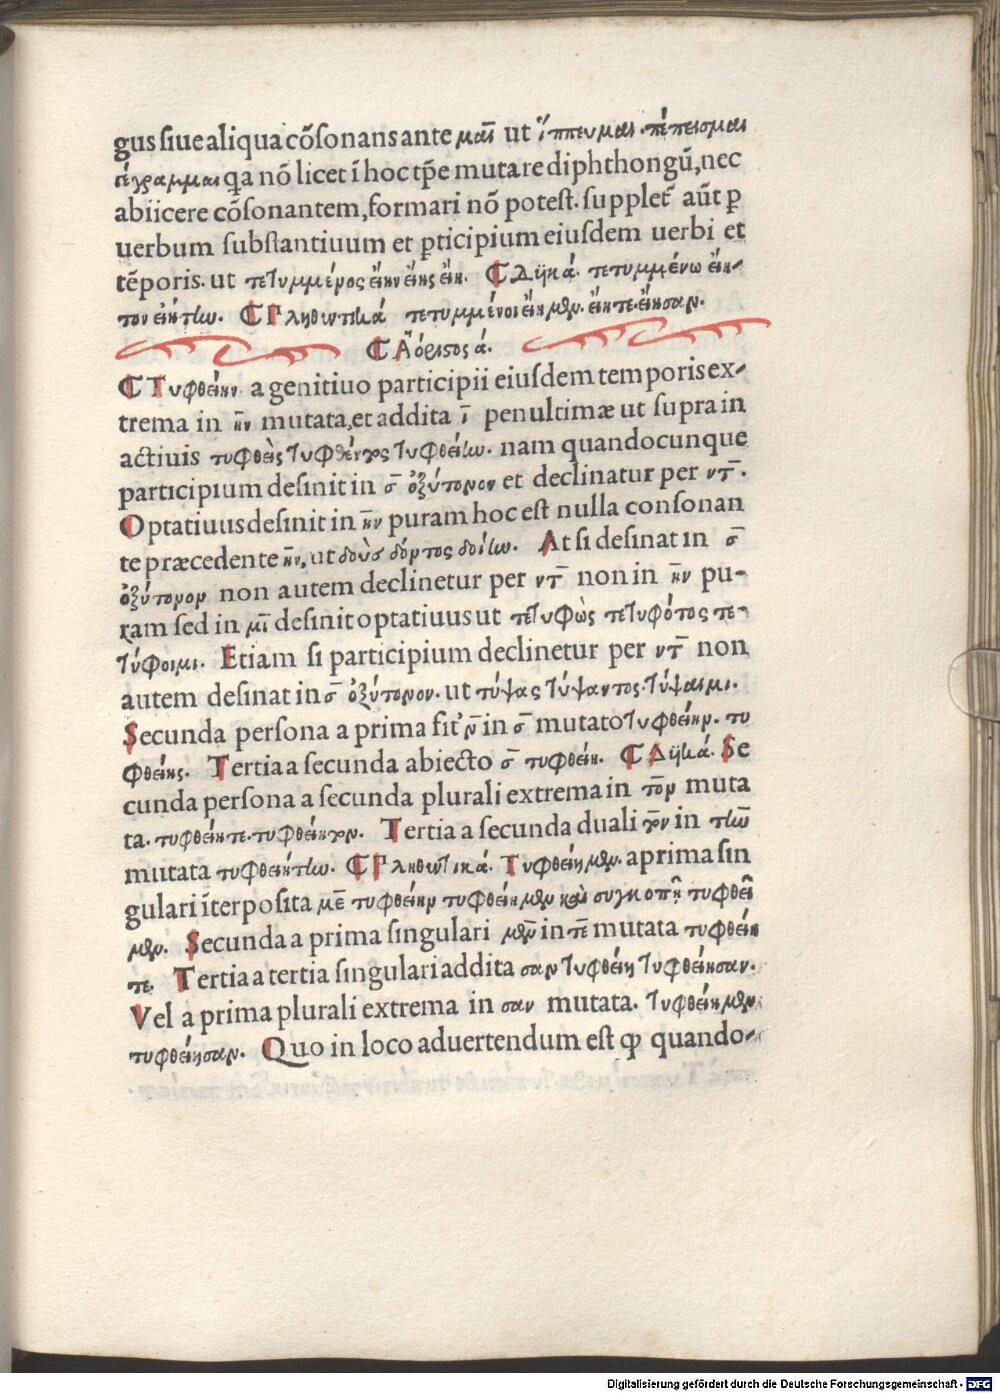 gus siue aliqua cõsonans ante μαῑ ut ἵππευμαι. πέπεισμαι
γέγραμμαι qa nõ licet ĩ hoc tp̃e mutare diphthongũ, nec
abiicere cõsonantem, formari nõ potest. supplet̃ aũt ꝑ
uerbum substantiuum et ꝑticipium eiusdem uerbi et
tẽporis. ut τετυμμένος εἴην εἴης εἴη. ¶ Δϊκά. τετυμμένω εἴη-
τον εἰήτην. ¶ Πληθωτικά τετυμμένοι εἴημεν. εἴητε. εἴησαν.
¶ Ἀόριστος ά.
¶ Τυφθείην a genitiuo participii eiusdem temporis ex-
trema in η̄ν mutata, et addita ῑ penultimæ ut supra in
actiuis τυφθεὶς τυφθέντος τυφθείην. nam quandocunque
participium desinit in σ̄ ὀξύτονον et declinatur per ντ̄.
Optatiuus desinit in η̄ν puram hoc est nulla consonan
te præcedente η̄ν, ut δοὺσ δόντος δοίην. At si desinat in σ̄
ὀξύτονον non autem declinetur per ντ̄ non in η̄ν pu-
ram sed in μῑ desinit optatiuus ut τετυφὼς τετυφότος τε-
τύφοιμι. Etiam si participium declinetur per ντ̄ non
autem desinat in σ̄ ὀξύτονον. ut τύψας τύψαντος. τύψαιμι.
Secunda persona a prima fit ν̄ in σ̄ mutato τυφθείην. τυ
φθείης. Tertia a secunda abiecto σ̄ τυφθείη. ¶ Δϊκά. Se
cunda persona a secunda plurali extrema in το̄ν muta
ta. τυφθείητε. τυφθείητον. Tertia a secunda duali το̄ν in τη̄ν
mutata τυφθειήτην. ¶ Πληθωτικά. Τυφθείημεν. a prima sin
gulari ĩterposita με̄ τυφθείην τυφθείημεν καὶ συγκοπῇ τυφθεῖ
μεν. Secunda a prima singulari με̄ν in τε̄ mutata τυφθείη
τε. Tertia a tertia singulari addita σαν τυφθείη τυφθείησαν.
Vel a prima plurali extrema in σαν mutata. τυφθείημεν
τυφθείησαν. Quo in loco aduertendum est ꝙ quando-
Digitalisierung gefördert durch die Deutsche Forschungsgemeinschaft - DFG